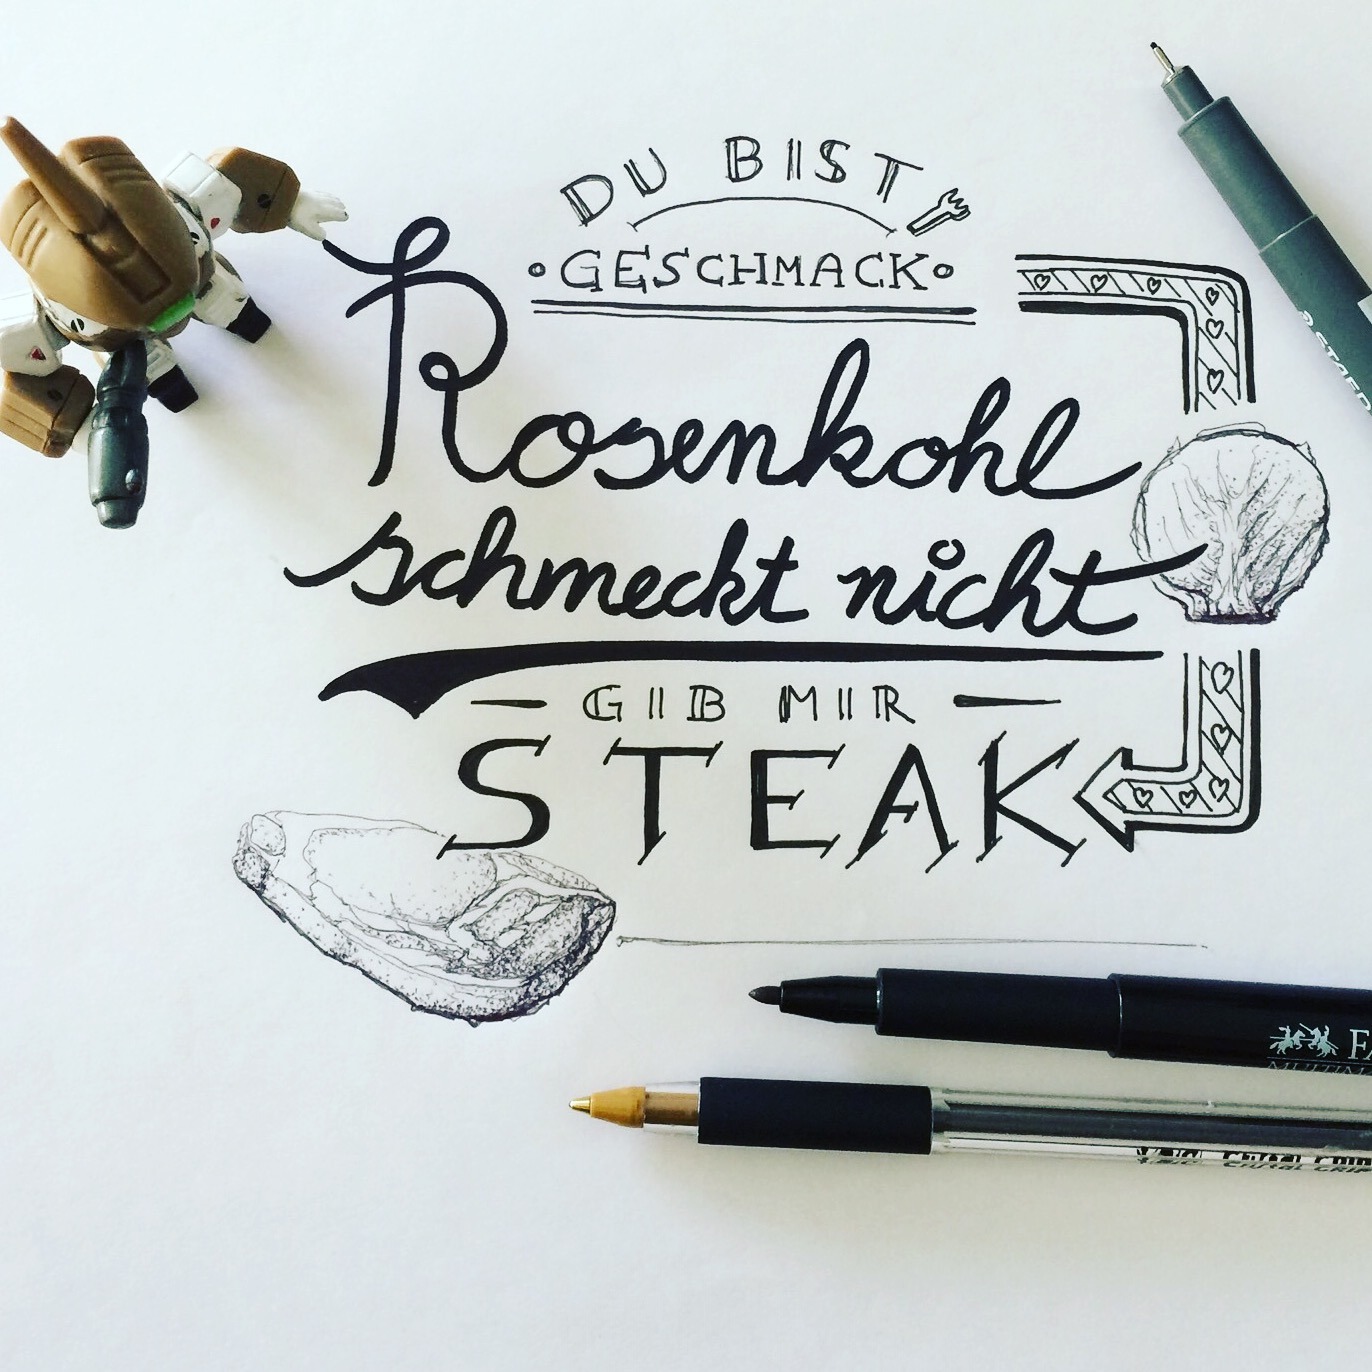 DU BIST
GESCHMACK
Rosenkohl
schmeckt nicht
GIB MIR
STEAK